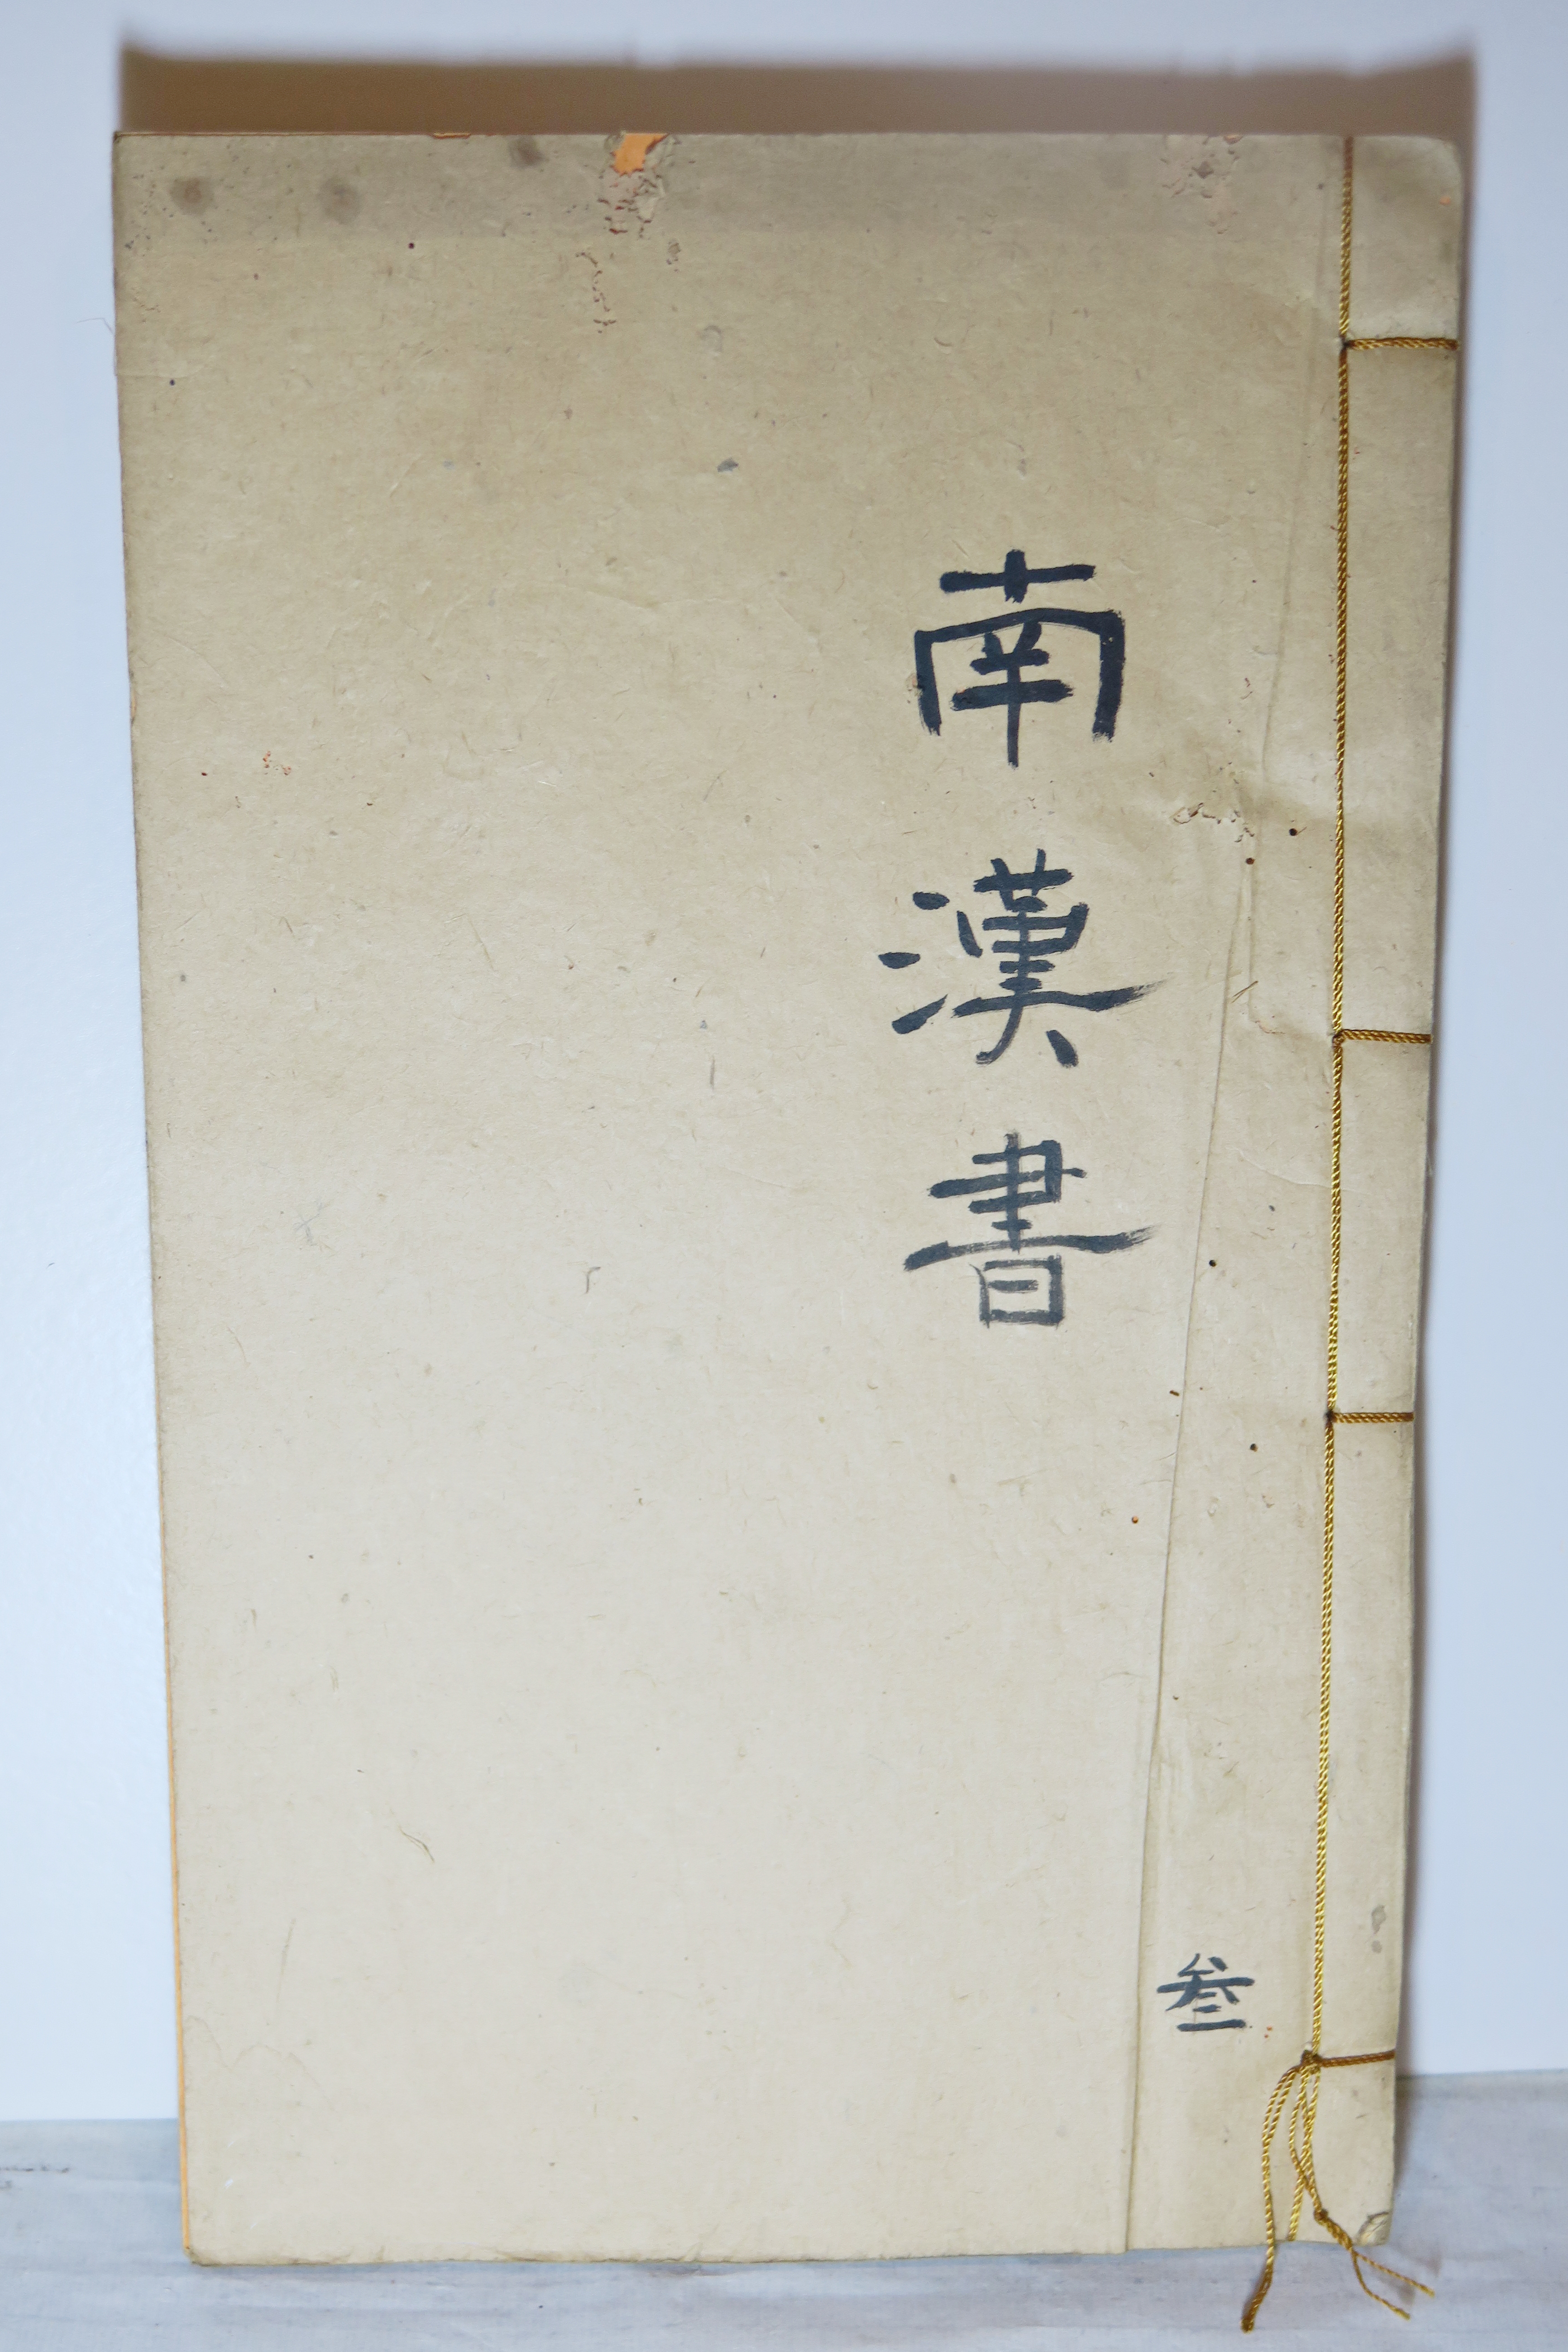 南漢書
叁